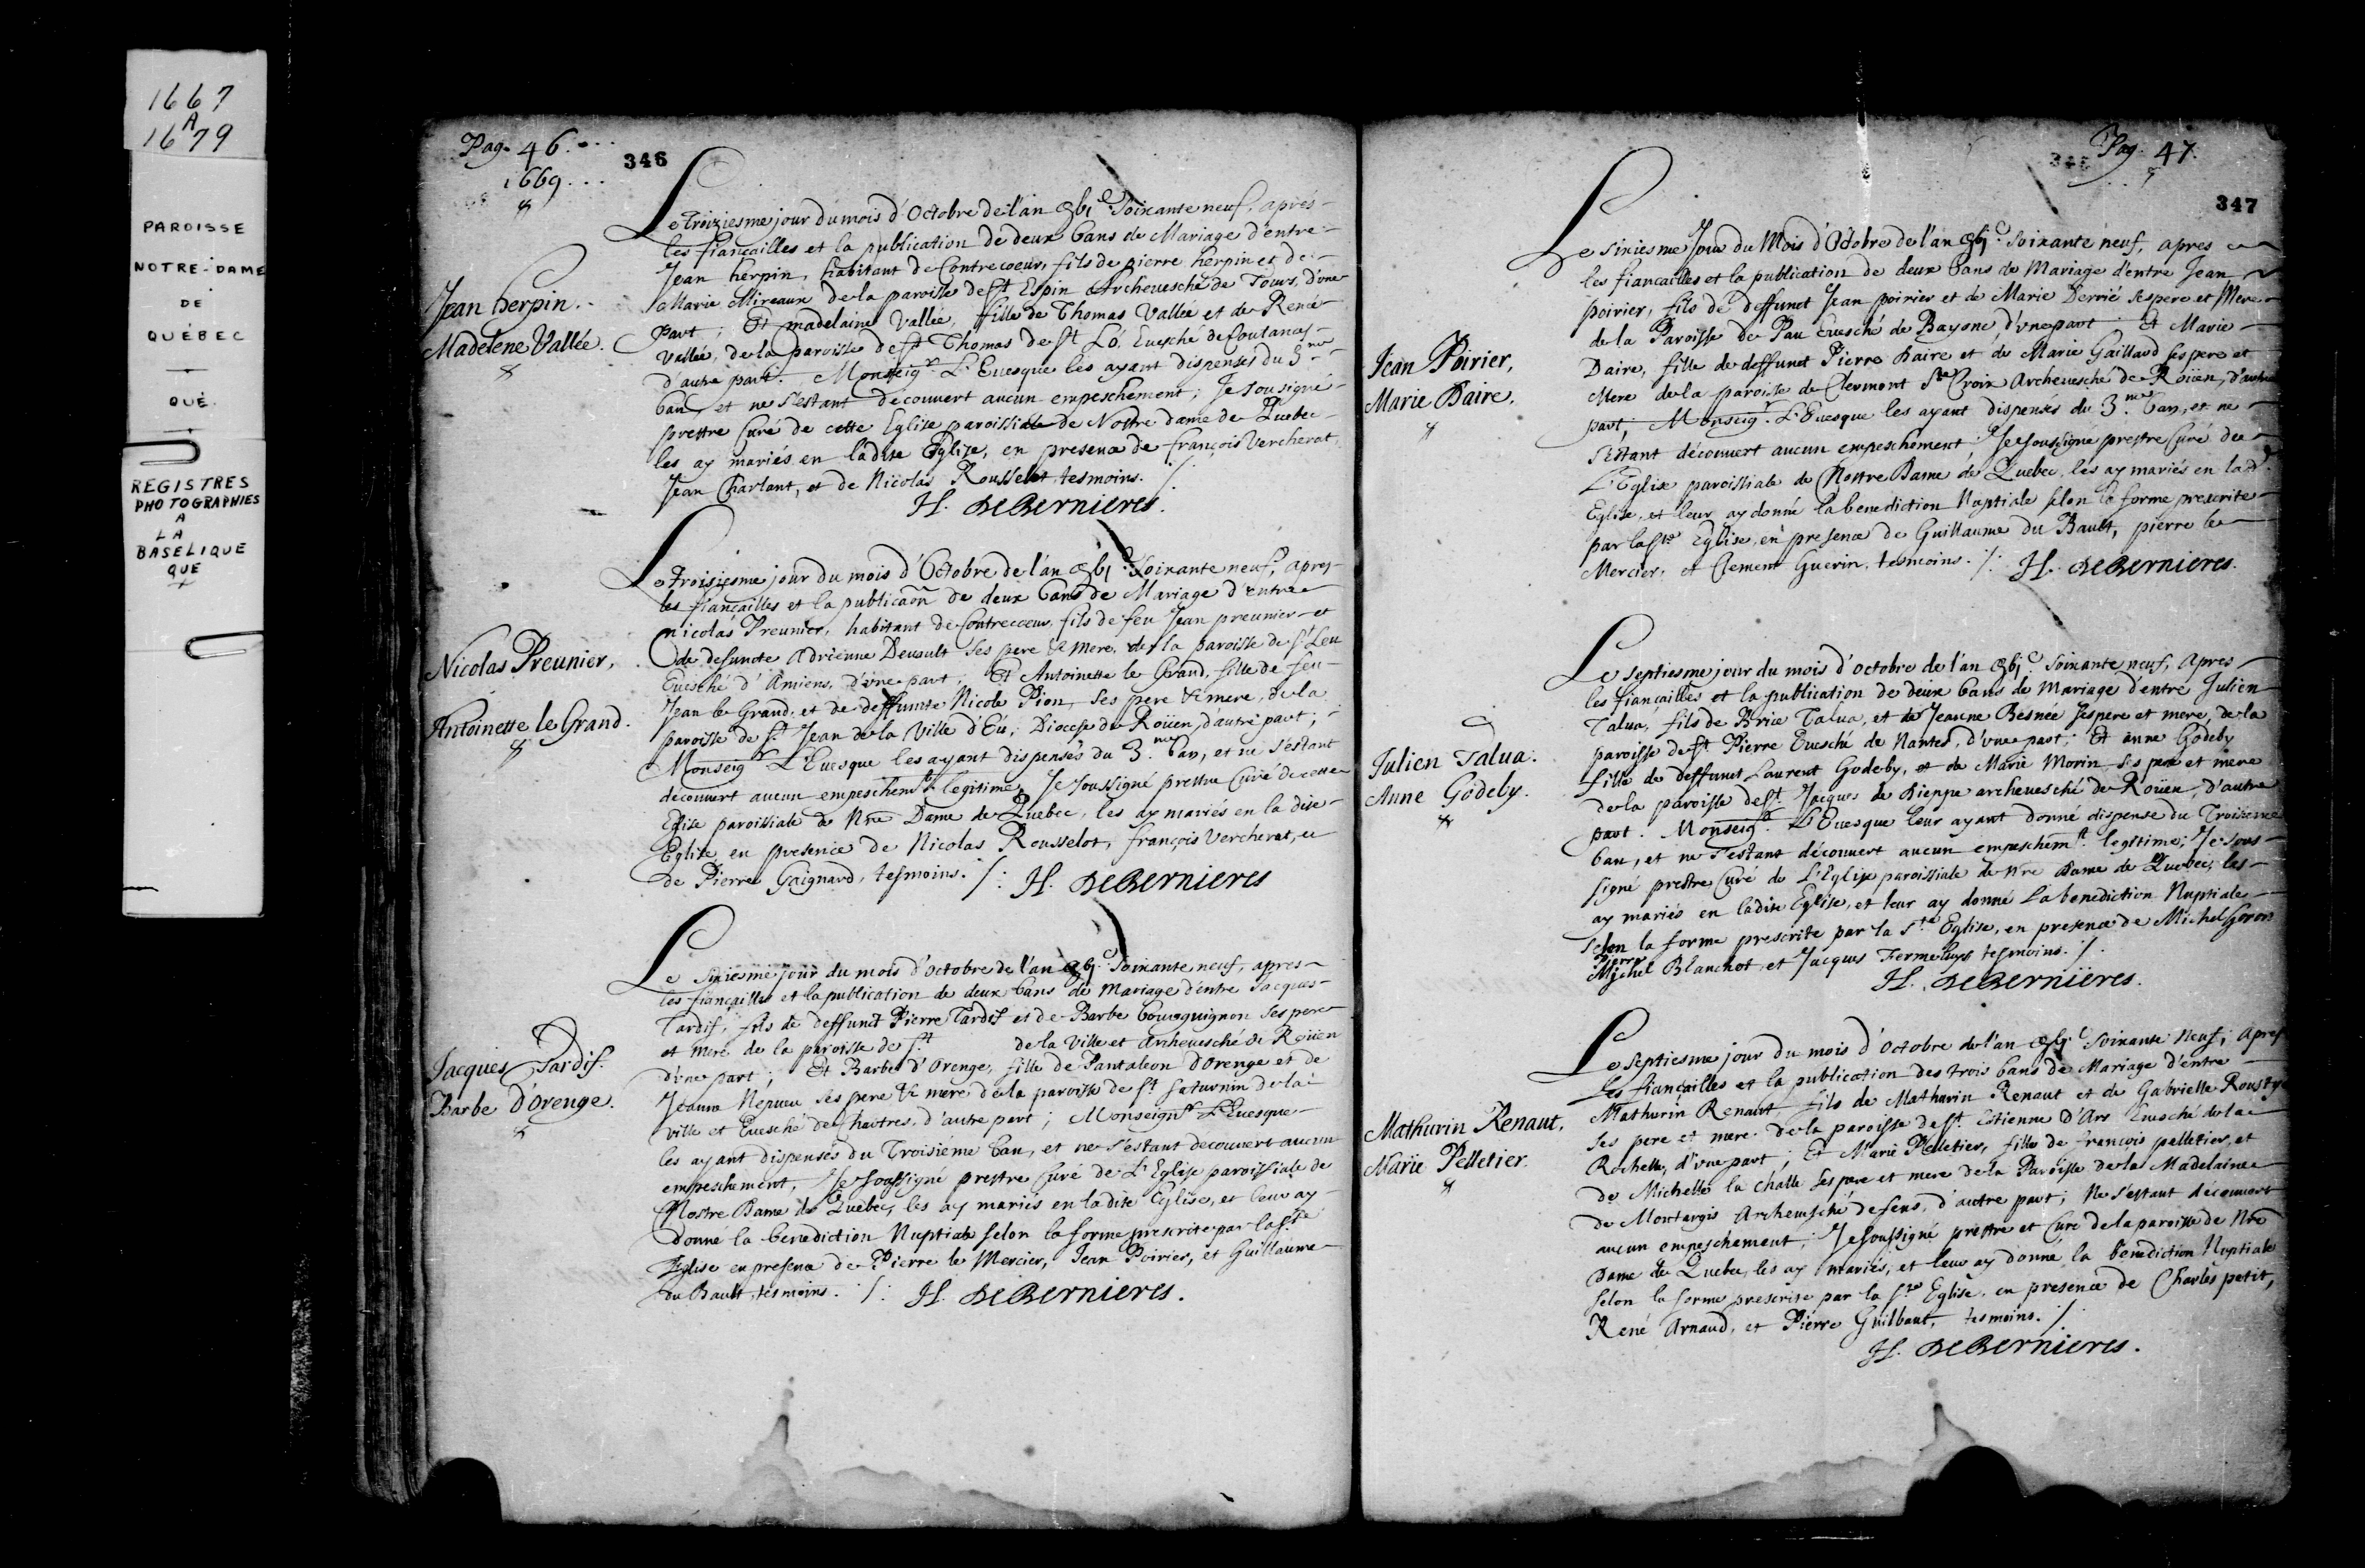 1667
A
1679
PAROISSE
NOTRE-DAME
DE
QUÉBEC
QUÉ.
REGISTRES
PHOTOGRAPHIES
A
LA
BASELIQUE
QUE
Pag. 46
1669
346
Le troiziesme jour du mois d'Octobre de l'an soixante neuf, aprés
les fiançailles et la publication de deux bans de Mariage d'entre
Jean herpin, habitant de Contrecoeur, fils de pierre herpin et de
Marie Mireaux de la paroisse de st Espin Archeuesché de Tours, d'une
part; Et madelaine Vallée, fille de Thomas Vallée et de Renée
Vallée, de la paroisse de st Thomas de st Lô, Euesché de Coutances
d'autre part. Monseigr L'Euesque les ayant dispensés du 3me
ban, et ne s'estant découvert aucun empeschement; Je sousigné
prestre Curé de cette Eglise paroissiale de Nostre dame de Quebec
les ay mariés en ladite Eglise, en presence de françois Vercherat,
Jean Charlant, et de Nicolas Rousselot tesmoins. /.
H. DeBernieres.
Jean herpin.
Madelene Vallée.
Le Troisiesme jour du mois d'Octobre de l'an soixante neuf, apres
les fiançailles et la publicaõn de deux bans de Mariage d'entre
nicolas Preunier, habitant de Contrecoeur, fils de feu Jean preunier et
de defuncte Adrienne Deuault ses pere & mere, de la paroisse de st Leu
Euesché d'Amiens, d'vne part; Et Antoinette le Grand, fille de feu
Jean le Grand, et de deffuncte Nicole Pion, ses pere & mere, de la
paroisse de st Jean de la Ville d'Eu, Diocese de Roüen, d'autre part;
Monseigr L'Euesque les ayant dispensés du 3me ban, et ne s'estant
decouvert aucun empeschemt legitime, Je soussigné prestre Curé de cette
Eglise paroissiale de Nre Dame de Quebec, les ay mariés en la dite
Eglise, en presence de Nicolas Rousselot, françois Vercherat, et
de Pierre Gaignard, tesmoins. /: H. DeBernieres
Nicolas Preunier,
Antoinette le Grand.
Le sixiesme jour du mois d'octobre de l'an soixante neuf, apres
les fiançailles et la publication de deux bans de Mariage d'entre Jacques
Tardif, fils de deffunct Pierre Tardif et de Barbe Bourguignon ses pere
et mere de la paroisse de st de la Ville et Archeuesché de Roüen
d'vne part; Et Barbe d'Orenge, fille de Pantaleon d'Orenge et de
Jeanne Nepueu ses pere & mere de la paroisse de st Saturnin de la
ville et Euesché de Chartres, d'autre part; Monseignr L'Euesque
les ayant dispensés du Troisiéme ban, et ne s'estant decouvert aucun
empeschement, Je soussigné prestre Curé de L'Eglise paroissiale de
Nostre Dame de Quebec, les ay mariés en ladite Eglise, et leur ay
donne la benediction Nuptiale selon la forme prescrite par la ste
Eglise en presence de Pierre le Mercier, Jean Poirier, et Guillaume
du Bault, tesmoins. /: H. DeBernieres.
Jacques Tardif.
Barbe d'Orenge.
Pag. 47.
347
Le sixiesme Jour du Mois d'Octobre de l'an soixante neuf, apres
les fiancailles et la publication de deux bans de Mariage d'entre Jean
poirier, fils de deffunct Jean poirier et de Marie Dervié ses pere et Mere
de la Paroisse de Pau Euesché de Bayone d'vne part Et Marie
Daire, fille de deffunct Pierre Daire et de Marie Gaillard ses pere et
Mere de la paroisse de Clermont Ste Croix Archeuesché de Roüen, d'autre
part; Monseigr L'Euesque les ayant dispensés du 3me ban, et ne
s'estant découvert aucun empeschement; Je soussigné prestre Curé de
L'Eglise paroissiale de Nostre Dame de Quebec, les ay mariés en lad.
Eglise, et leur ay donné la benediction Nuptiale selon la forme prescrite
par la ste Eglise, en presence de Guillaume du Bault, pierre le
Mercier, et Clement Guerin, tesmoins. /: H. DeBernieres.
Jean Poirier,
Marie Daire,
Le septiesme jour du mois d'octobre de l'an soixante neuf, Apres
les fiançailles et la publication de deux bans de mariage d'entre Julien
Talua, fils de Brice Talua, et de Jeanne Besnée ses pere et mere, de la
paroisse de st Pierre Euesché de Nantes, d'vne part; Et anne Godeby
fille de deffunct Laurent Godeby, et de Marie Morin ses pere et mere
de la paroisse de st Jacques de Dieppe archeuesché de Roüen, d'autre
part. Monseigr L'Euesque leur ayant donné dispense du Troisieme
ban, et ne s'estant découvert aucun empeschemt legitime; Je sous-
signé prestre Curé de L'Eglise paroissiale de Nre Dame de Quebec, les
ay mariés en ladite Eglise, et leur ay donné La benediction Nuptiale
selon la forme prescrite par la Ste Eglise, en presence de Michel Goron
Pierre
Michel Blanchot et Jacques tesmoins. /.
H. DeBernieres.
Julien Talua.
Anne Godeby.
Le septiesme jour du mois d'Octobre de l'an soixante neuf; Apres
Les fiançailles et la publication des trois bans de Mariage d'entre
Mathurin Renaut, fils de Mathurin Renaut et de Gabrielle
ses pere et mere de la paroisse de st Estienne d'Ars Euesché de la
Rochelle, d'vne part; Et Marie Pelletier, fille de françois pelletier, et
de Michelle la Challe ses pere et mere de la Paroisse de la Madelaine
de Montargis Archeuesché de sens, d'autre part; Ne s'estant découvert
aucun empeschement; Je soussigné prestre et Curé de la paroisse de Nre
Dame de Quebec, les ay mariés, et leur ay donné la benediction Nuptiale
selon la forme prescrite par la ste Eglise, en presence de Charles petit,
René Arnaud, et Pierre Guilbaut, tesmoins. /.
H. DeBernieres.
Mathurin Renaut,
Marie Pelletier.